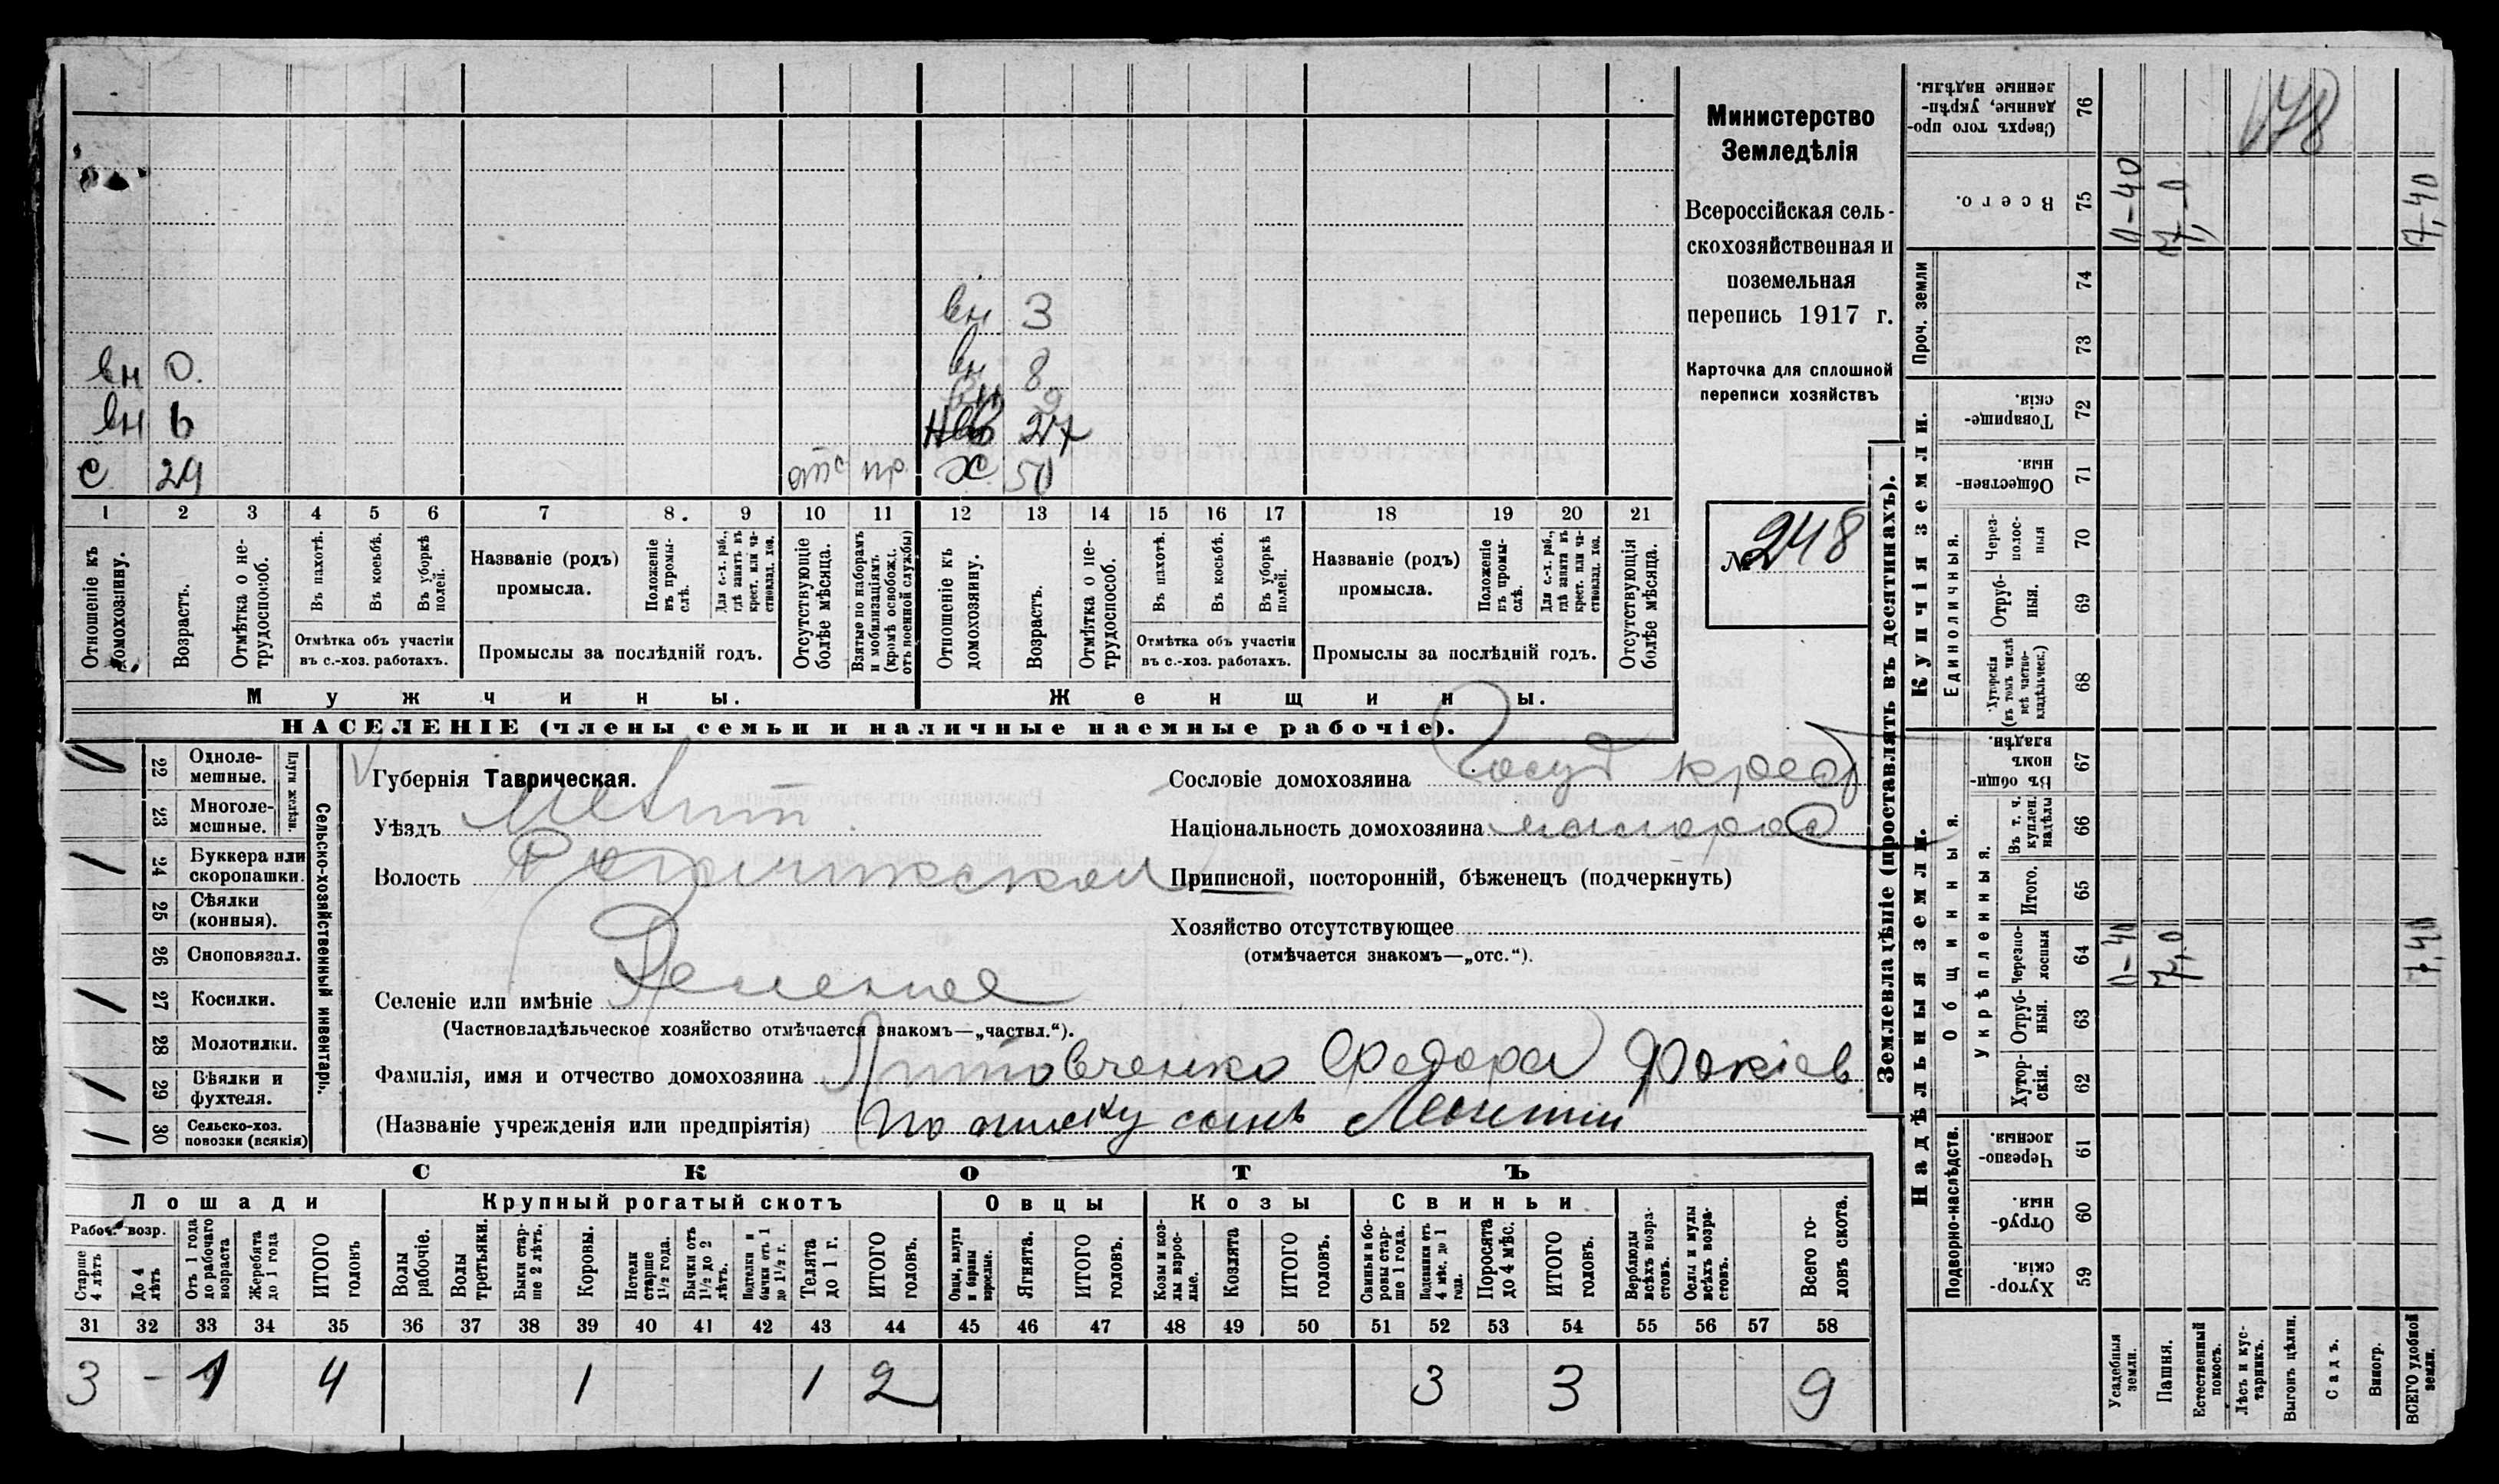 вн 3
вн 0. вн 8
вн 9
вн 6 нев 27
с 29 отс пр. х 50
1 2 3 4 5 6 7 8. 9 10 11 12 13 14 15 16 17 18 19 20 21
Отношеніе къ домохозяину.
Возрастъ.
Отмѣтка о не-трудоспособ.
Въ пахотѣ.
Въ косьбѣ.
Въ уборкѣ полей.
Отмѣтка объ участіи
въ с.-хоз. работахъ.
Названіе (родъ)
промысла.
Положеніе въ промы-слѣ.
Для с.-х. раб., гдѣ занятъ въ крест. или ча-ствовлад. хоз.
Промыслы за послѣдній годъ.
Отсутствующіе болѣе мѣсяца.
Взятые по наборамъ и мобилизаціямъ (кромѣ освобожд. отъ военной службы)
Отношеніе къ домохозяину.
Возрастъ.
Отмѣтка о не-трудоспособ.
Въ пахотѣ.
Въ косьбѣ.
Въ уборкѣ полей.
Отмѣтка объ участіи
въ с.-хоз. работахъ.
Названіе (родъ)
промысла.
Положеніе въ промы-слѣ.
Для с.-х. раб., гдѣ занятъ въ крест. или ча-ствовлад. хоз.
Промыслы за послѣдній годъ.
Отсутствующія болѣе мѣсяца.
Мужчины.
Женщины.
НАСЕЛЕНІЕ (члены семьи и наличные наемные рабочіе).
Министерство
Земледѣлія
Всероссійская сель-
скохозяйственная и
поземельная
перепись 1917 г.
Карточка для сплошной
переписи хозяйствъ
№ 248
Сельско-хозяйственный инвентарь.
Плуги желѣзн.
0 22 Одноле-мешные.
23 Многоле-мешные.
1 24 Буккера или скоропашки.
25 Сѣялки (конныя).
26 Сноповязал.
1 27 Косилки.
28 Молотилки.
1 29 Вѣялки и фухтеля.
1 30 Сельско-хоз. повозки (всякія)
Губернія Таврическая.
Уѣздъ Мелит.
Волость Рогачикской
Селеніе или имѣніе
(Частновладѣльческое хозяйство отмѣчается знакомъ—„частвл.“).
Фамилія, имя и отчество домохозяина Литовченко Федора Фокіев
(Названіе учрежденія или предпріятія) по списку сынъ Леонтій
Сословіе домохозяина Госуд крест
Національность домохозяина малорос
Приписной, посторонній, бѣженецъ (подчеркнуть)
Хозяйство отсутствующее
(отмѣчается знакомъ—„отс.“).
СКОТЪ
Лошади Крупный рогатый скотъ Овцы Козы Свиньи
Рабоч. возр.
Старше 4 лѣтъ
До 4 лѣтъ
Отъ 1 года до рабочаго возраста
Жеребята до 1 года
ИТОГО головъ
Волы рабочіе.
Волы третьяки.
Быки стар-ше 2 лѣтъ.
Коровы.
Нетели старше 1½ года.
Бычки отъ 1½ до 2 лѣтъ.
Подтелки и бычки отъ 1 до 1½ г.
Телята до 1 г.
ИТОГО головъ.
Овцы, валухи и бараны взрослые.
Ягнята.
ИТОГО головъ.
Козы и коз-лы взрос-лые.
Козлята
ИТОГО головъ.
Свиньи и бо-ровы стар-ше 1 года.
Подсвинки отъ 4 мѣс. до 1 года.
Поросята до 4 мѣс.
ИТОГО головъ.
Верблюды всѣхъ возра-стовъ.
Ослы и мулы всѣхъ возра-стовъ.
Всего го-ловъ скота.
31 32 33 34 35 36 37 38 39 40 41 42 43 44 45 46 47 48 49 50 51 52 53 54 55 56 57 58
3 - 1 4 1 1 2 3 3 9
Землевладѣніе (проставлять въ десятинахъ).
Надѣльныя земли.
Купчія земли.
Проч. земли
Подворно-наслѣдств.
Общинныя.
Укрѣпленныя.
Единоличныя.
Сверхъ того про-данные, укрѣп-ленные надѣлы. 76
Всего. 75 0-40 7,-0 7,40
74
73
Товарище-скія. 72
Обществен-ныя. 71
Через-полос-ныя 70
Отруб-ныя. 69
Хуторскія (въ томъ числѣ всѣ частно-владѣльческ.) 68
Въ общин-номъ владѣн. 67
Въ т. ч. куплен. надѣлы 66
Итого. 65
Черезпо-лосныя 64 0-40 7,0 7,40
Отруб-ныя. 63
Хутор-скія. 62
Черезпо-лосныя. 61
Отруб-ныя. 60
Хутор-скія. 59
Усадебныя земли.
Пашня.
Естественный покосъ.
Лѣсъ и кус-тарникъ.
Выгонъ цѣлин.
Садъ.
Виногр.
ВСЕГО удобной земли.